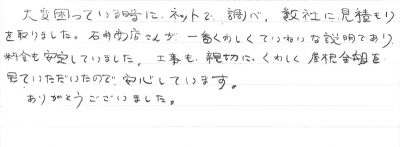 大変困っている時に、ネットで、調べ、数社に見積もり
を取りました。石井商店さんが一番くわしくていねいな説明であり、
料金も安定していました。工事も、親切に、くわしく屋根全部を
見ていただいたので、安心しています。
ありがとうございました。